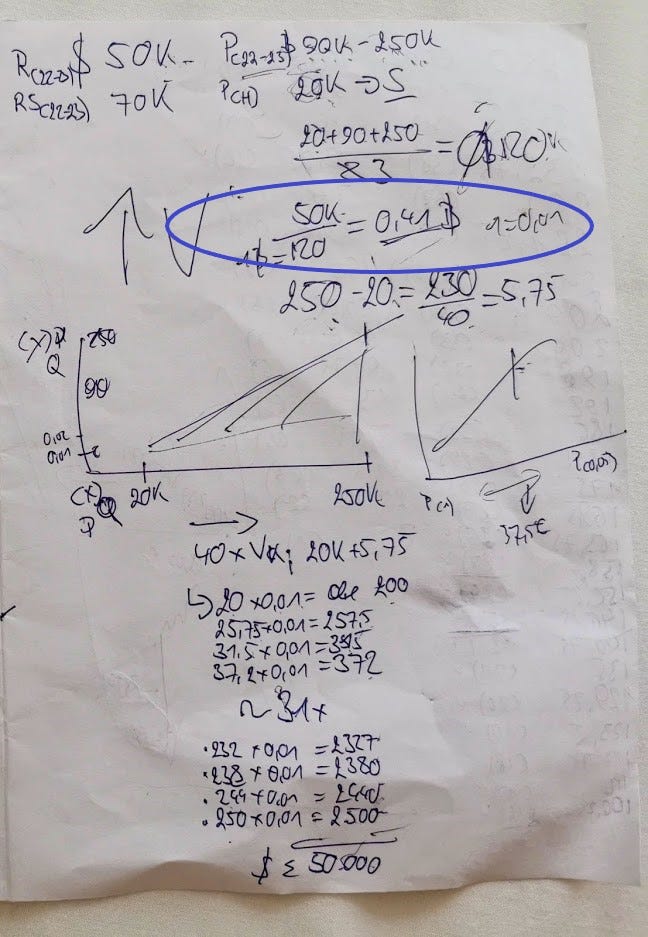 R(22-23) $ 50K -
P(22-23) $ 90K - 250K
RS(22-23) 70K
P(H) 20K → S
20+90+250 / 3 = Ø $ 120K
50K / 120 = 0,41 $ 1=0,01
250 - 20 = 230 / 40 = 5,75
(X) Q
250
90
0,02
0,01
(X) Q
20K
250K
P(1)
P(0,05)
37,5€
40 x VK; 20K + 5,75
↳ 20 x 0,01 = 200
25,75 x 0,01 = 257,5
31,5 x 0,01 = 315
37,2 x 0,01 = 372
~ 31x
. 232 x 0,01 = 2327
. 238 x 0,01 = 2380
. 244 x 0,01 = 2440
. 250 x 0,01 = 2500
$ Σ 50.000